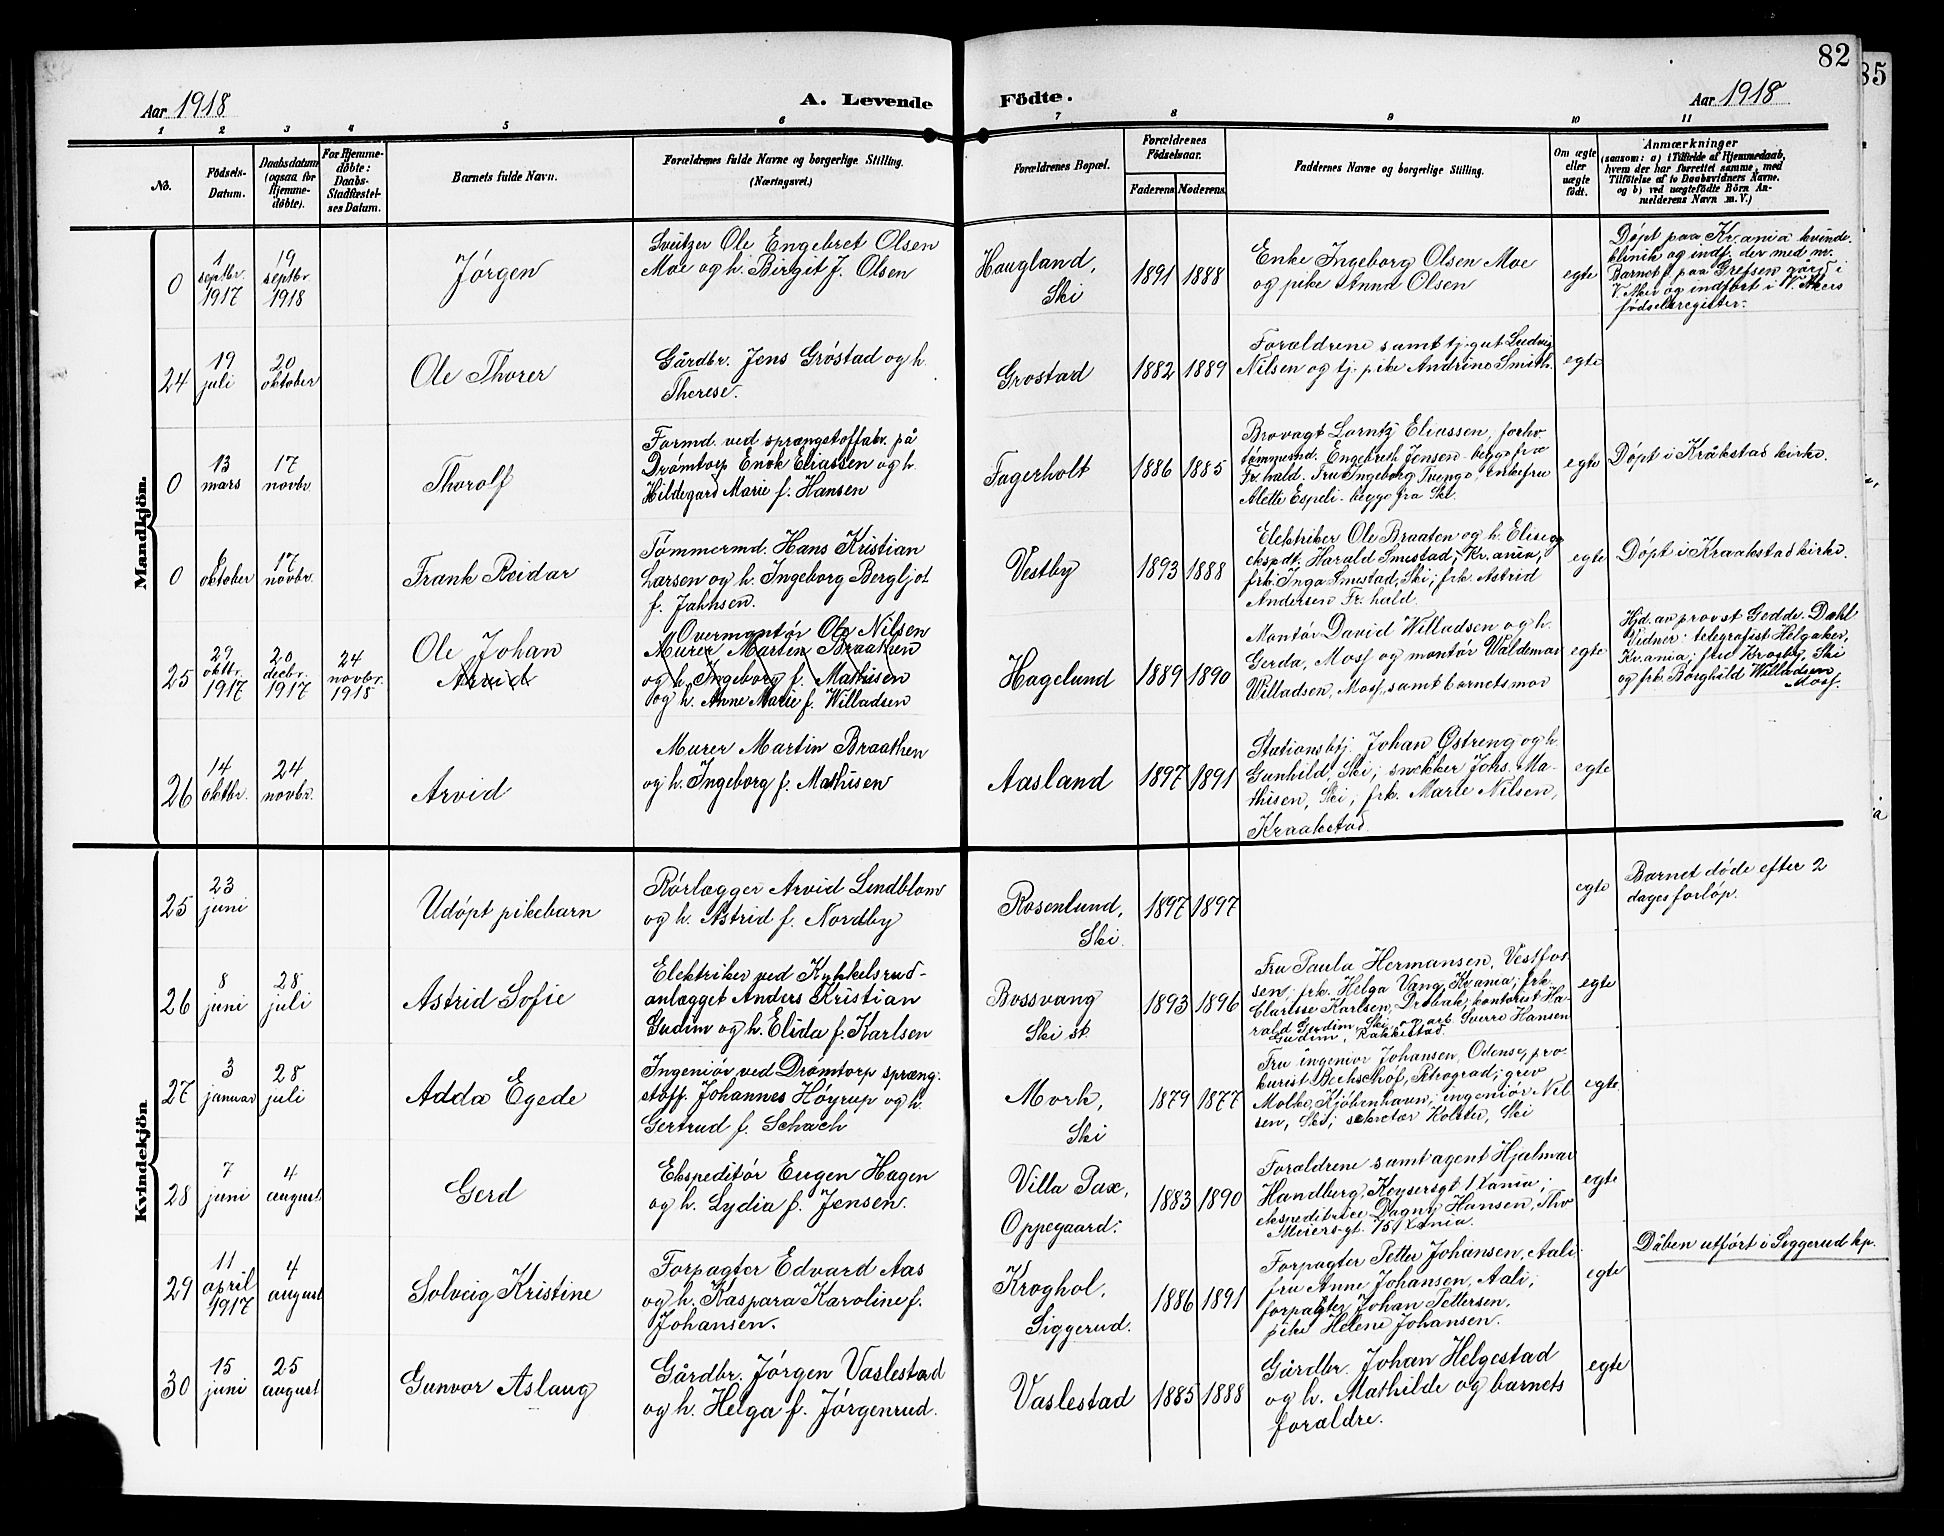 82
85
Aar 1918
A. Levende
Födte.
Aar 1918
1 2 3 4 5 6 7 8 9 10 11
No.
Födsels-
Datum.
Daabsdatum
(ogsaa for
Hjemme-
döbte).
For Hjemme-
döbte:
Daabs-
Stadfæstel-
ses Datum.
Barnets fulde Navn.
Forældrenes fulde Navne og borgerlige Stilling.
(Næringsvei.)
Forældrenes Bopæl.
Forældrenes
Födselsaar.
Faderens Moderens
Faddernes Navne og borgerlige Stilling.
Om ægte
eller
uægte
födt.
Anmærkninger
(saasom: a) i Tilfælde af Hjemmedaab,
hvem der har forrettet samme, med
Tilföielse af to Daabsvidners Navne,
og b) ved uægtefödte Börn An-
melderens Navn m. V.)
Mandkjön.
0
1
septbr.
1917
19
septbr.
1918
Jórgen
Sveitzer Ole Engebret Olsen
Moe og h. Birgit J. Olsen
Haugland,
Ski
1891 1888
Enke Ingeborg Olsen Moe
og pike Anna Olsen
egte
Døpt paa Kr.ania kvinde-
klinik og indf. der med nr.
Barnet f. paa Grefsen gård i
V. Aker og indført i V. Akers
fødselsregister.
24
19
juli
20
oktober
Ole Thorer
Gårdbr. Jens Gróstad og h.
Therese.
Grostad
1882 1889
Forældrene samt tj.gut Ludvig
Nilsen og tj. pike Andrine Smith.
egte
0
13
mars
17
novbr.
Thorolf
Formd. ved sprængstoffabr. på
Drømtorp Enok Eliassen og h.
Hildegard Marie f. Hansen
Fagerholt
1886 1885
Brovagt Lorntz Eliassen, forhv.
tømmermd. Engebreth Jensen - begge fra
Fr.hald. Fru Ingeborg Tvenge, enkefru
Alette Espeli - begge fra Ski.
egte
Døpt i Kråkstad kirke.
0
6
oktober
17
novbr.
Frank Reidar
Tómmermd. Hans Kristian
Larsen og h. Ingeborg Bergljot
f. Jahnsen.
Vestby
1893 1888
Elektriker Ole Braaten og h. Elise og
ekspdt. Harald Smestad, Kr.ania,
frk. Inga Smestad, Ski; frk. Astrid
Andersen Fr.hald.
egte
Døpt i Kraakstad kirke.
25
29
oktbr.
1917
20
decbr.
1917
24
novbr.
1918
Ole Johan
Arvid
Overmontør Ole Nilsen
Murer Martin Braathen
og h. Ingeborg f. Mathisen
og h. Anne Marie f. Willadsen
Hagelund
1889 1890
Montør David Willadsen og h.
Gerda, Moss og montør Waldemar
Willadsen, Moss, samt barnets mor
egte
Hjd. av provst Gedde-Dahl
Vidner: telegrafist Helgaker,
Kr.ania, frk Krosby, Ski
og frk. Borghild Willadsen
Moss.
26
14
oktbr.
24
novbr.
Arvid
Murer Martin Braathen
og h. Ingeborg f. Mathisen
Aasland
1897 1891
Stationsbtj. Johan Østreng og h.
Gunhild, Ski; snekker Johs. Ma-
thisen, Ski; frk. Marie Nilsen,
Kraakstad.
egte
Kvindekjön
25
23
juni
Udópt pikebarn
Rórlægger Arvid Lindblom
og h. Astrid f. Nordby
Rosenlund,
Ski.
1897 1897
egte
Barnet døde efter 2
dages forløp.
26
8
juni
28
juli
Astrid Sofie
Elektriker ved Kykkelsrud-
anlægget Anders Kristian
Gudim og h. Elida f. Karlsen
Bossvang
Ski st.
1893 1896
Fru Paula Hermansen, Vestfos-
sen, frk. Helga Vang Kr.ania; frk.
Clarisse Karlsen, Drøbak, kontorist Ha-
rald Gudim, Ski og arb. Sverre Hansen
Gudim, Rakkestad
egte
27
3
januar
28
juli
Adda Egede
Ingeniór ved Drømtorp spræng-
stoff. Johannes Hóyrup og h.
Gertrud f. Schach
Mork,
Ski
1879 1877
Fru ingeniør Johansen, Odense, pro-
kurist Bechschóf, Petrograd; grev
Molke, Kjøbenhavn; ingeniór Nil-
sen, Ski; sekretær Holster, Ski
egte
28
7
juni
4
august
Gerd
Ekspeditór Eugen Hagen
og h. Lydia f. Jensen.
Villa Pax,
Oppegaard.
1883 1890
Forældrene samt agent Hjalmar
Handberg, Keysersgt 1 Kania;
ekspeditrice Dagny Hansen, Thv.
Meiersgt. 75 Kania.
egte
29
11
april
1917
4
august
Solveig Kristine
Forpagter Edvard Aas
og h. Kaspara Karoline f.
Johansen.
Kroghol,
Siggerud.
1886 1891
Forpagter Petter Johansen, Aali
fru Anne Johansen, Aali;
forpagter Johan Pettersen,
pike Helene Johansen.
egte
Dåben utført i Siggerud kp.
30
15
juni
25
august
Gunvor Aslaug
Gårdbr. Jórgen Vaslestad
og h. Helga f. Jórgenrud.
Vaslestad
1885 1888
Gårdbr. Johan Helgestad
og h. Mathilde og barnets
forældre.
egte